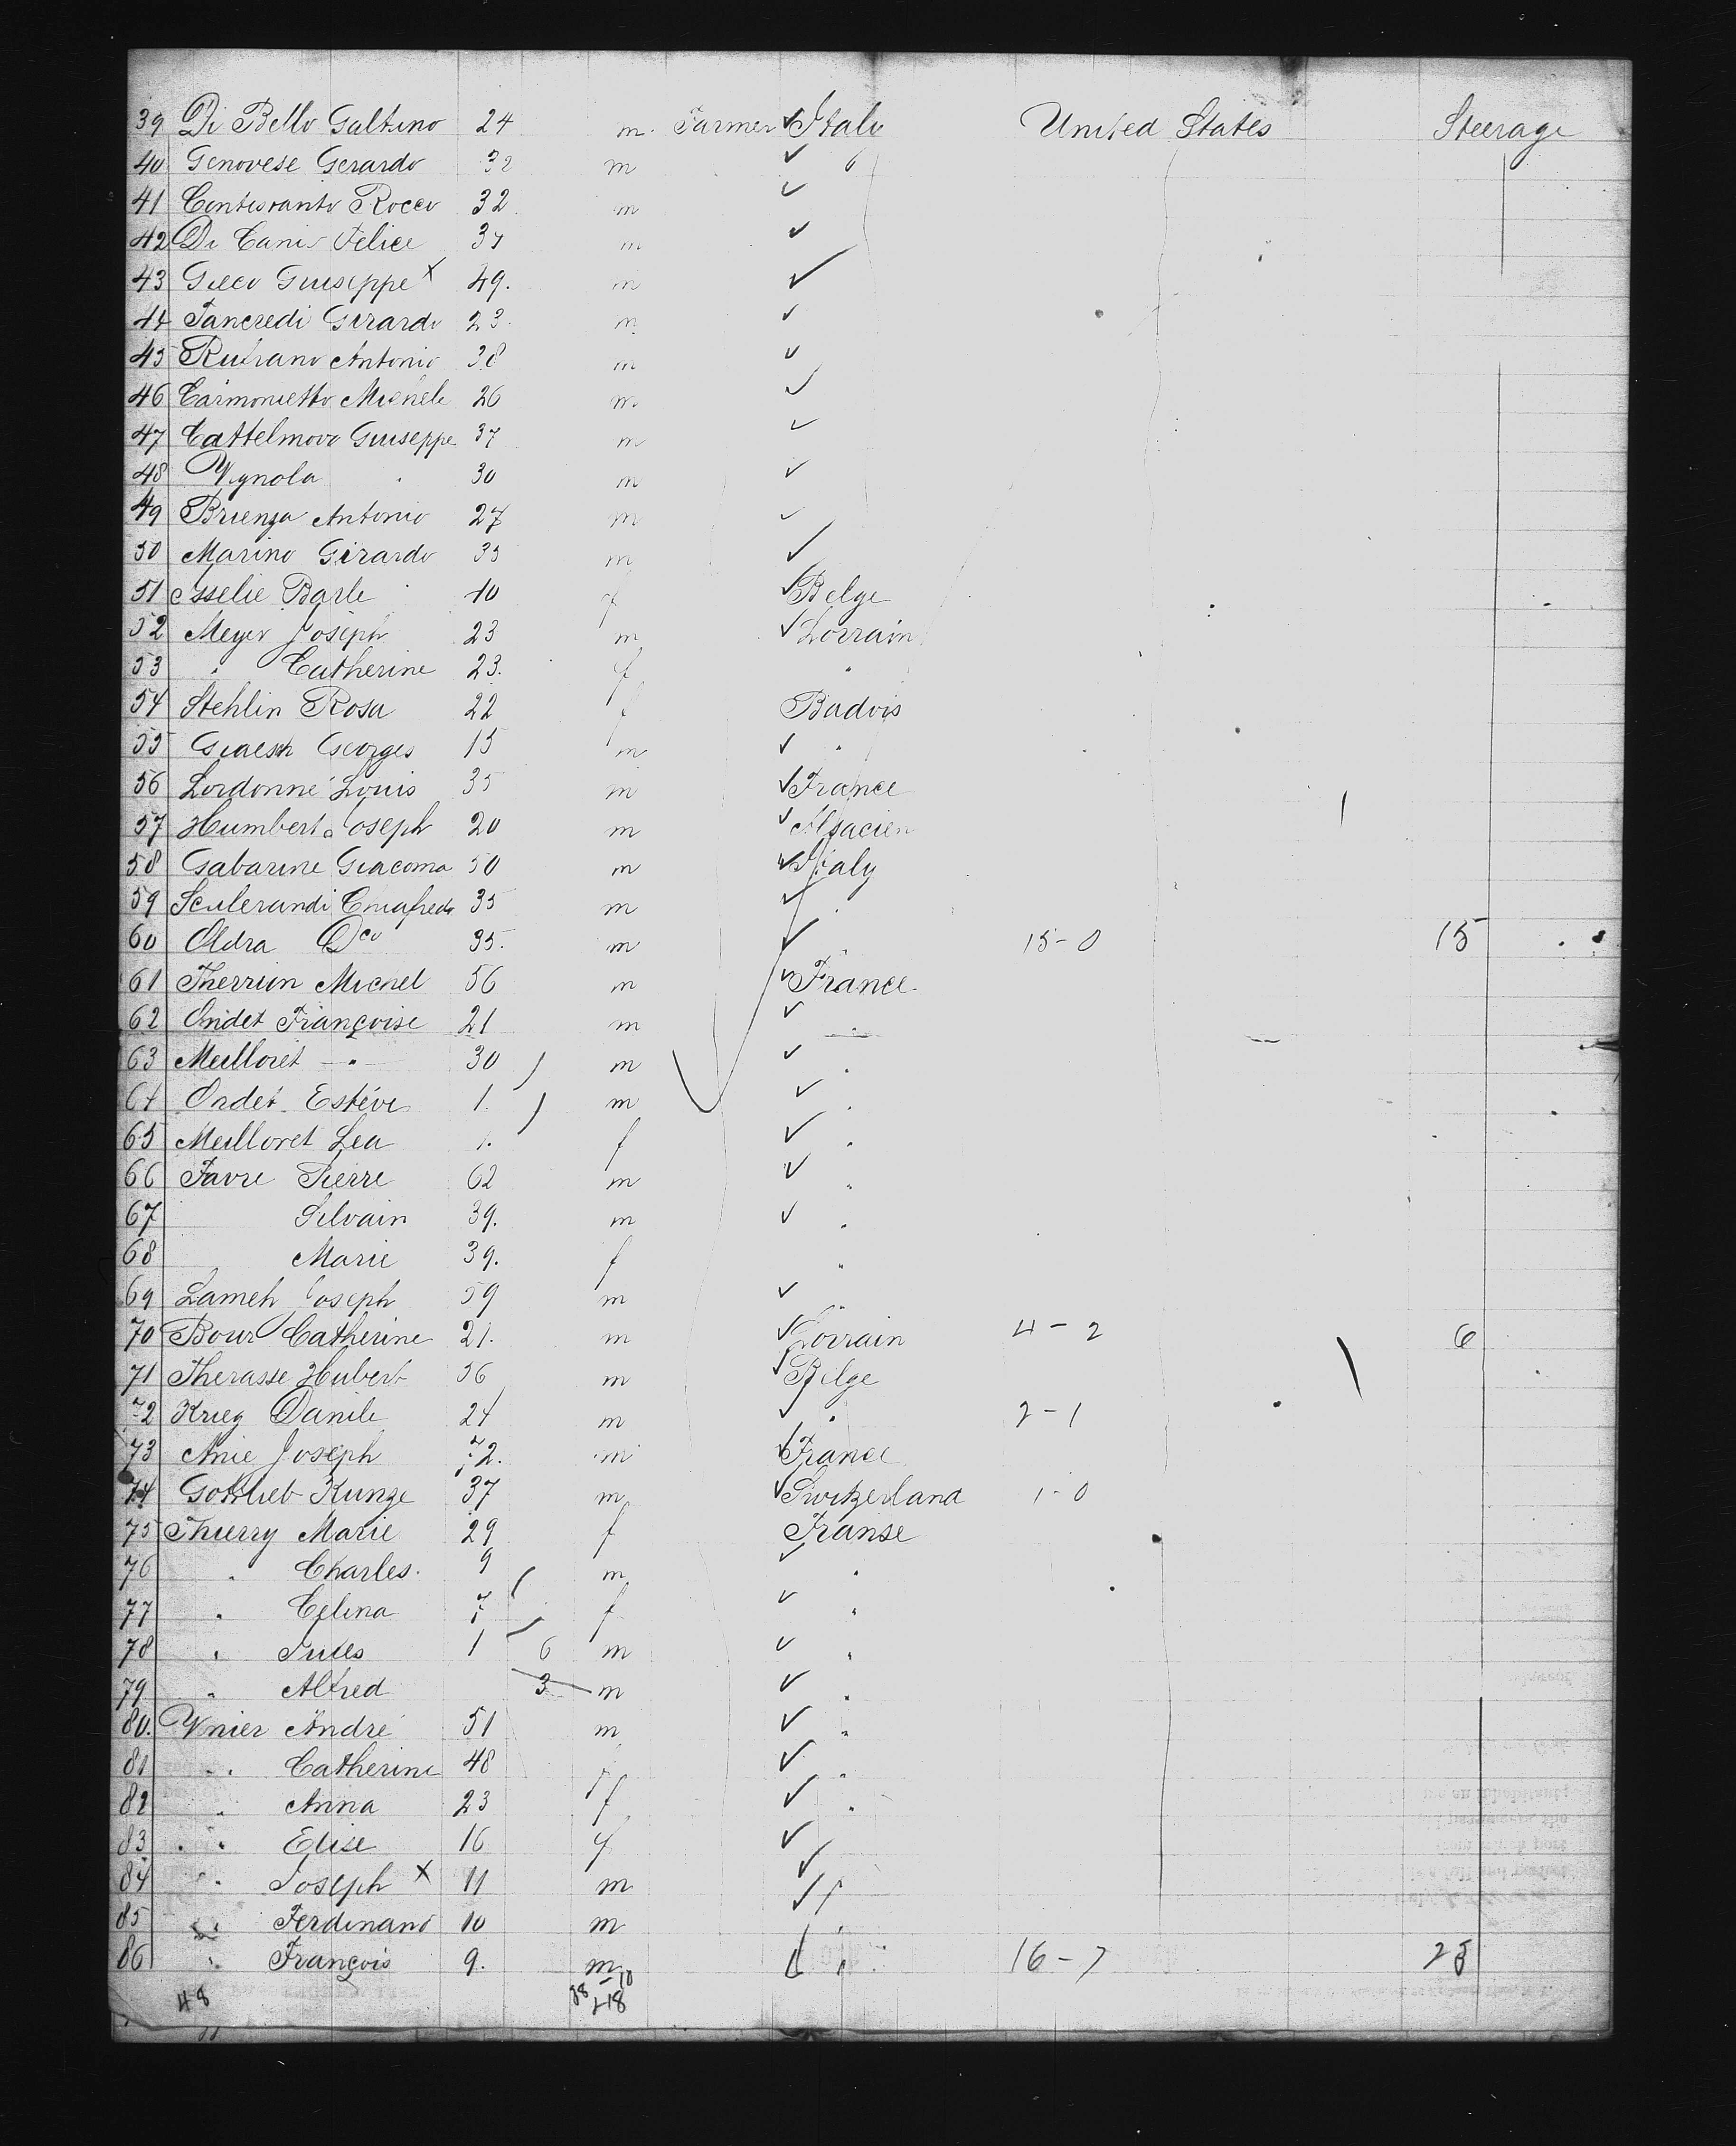 39 Di Bello Galtino 24 m. Farmer ✓ Italy United States Steerage
40 Genovese Gerardo 32 m ✓
41 Rocco 32 m ✓
42 Di Canio Felice 37 m ✓
43 Gieco Giuseppe x 49. m ✓
44 Tancredi Girardo 23. m ✓
45 Antonio 38 m ✓
46 Carmonietto Michele 26 m. ✓
47 Cattelmovo Giuseppe 37 m ✓
48 Vignola 30 m ✓
49 Brienza Antonio 27 m ✓
50 Marino Girardo 35 m ✓
51 Barle 40 f ✓ Belge
52 Meyer Joseph 23 m ✓ Lorrain
53 " Catherine 23. f "
54 Stehlin Rosa 22 f Badois
55 Georges 15 m ✓ "
56 Lordonné Louis 35 m ✓ France
57 Humbert Joseph 20 m ✓ Alsacien
58 Gabarine Giacoma 50 m ✓ Italy
59 35 m ✓
60 Oldra Dco 35. m ✓ 15-0 15
61 Michel 56 m ✓ France
62 Ondet Françoise 21 m ✓ "
63 Meilloret " 30 m ✓ "
64 Ondet Estéve 1. m ✓ "
65 Meilloret Lea 1. f ✓ "
66 Favre Pierre 62 m ✓ "
67 Silvain 39. m ✓ "
68 Marie 39. f "
69 Lameh Joseph 59 m ✓ "
70 Bour Catherine 21. m ✓ Lorrain 4-2 6
71 Therasse Hubert 36 m ✓ Belge
72 Krieg Danile 24 m ✓ " 2-1
73 Anie Joseph 72. m ✓ France
74 Gottlieb Kunze 37 m ✓ Switzerland 1-0
75 Thierry Marie 29 f Franse
76 " Charles. 9 m ✓ "
77 " Celina 7 f ✓ "
78 " Jules 1 6 m ✓ "
79 " Alfred 3 m ✓ "
80. André 51 m ✓ "
81 " Catherine 48 f ✓ "
82 " Anna 23 f ✓ "
83 " Elise 16 f ✓
84 " Joseph x 11 m ✓ "
85 " Ferdinand 10 m "
86 " François 9. m " 16-7 23
48